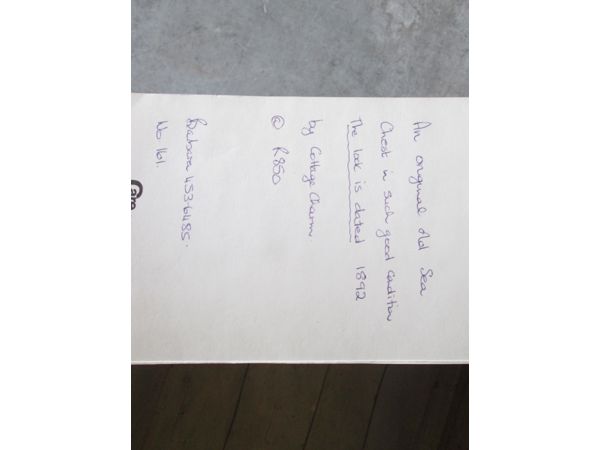 An original old Sea
Chest in such good condition
The lock is dated 1892
by Cottage Charm.
@ R850
Barbara 453-6485.
No 161.
Care